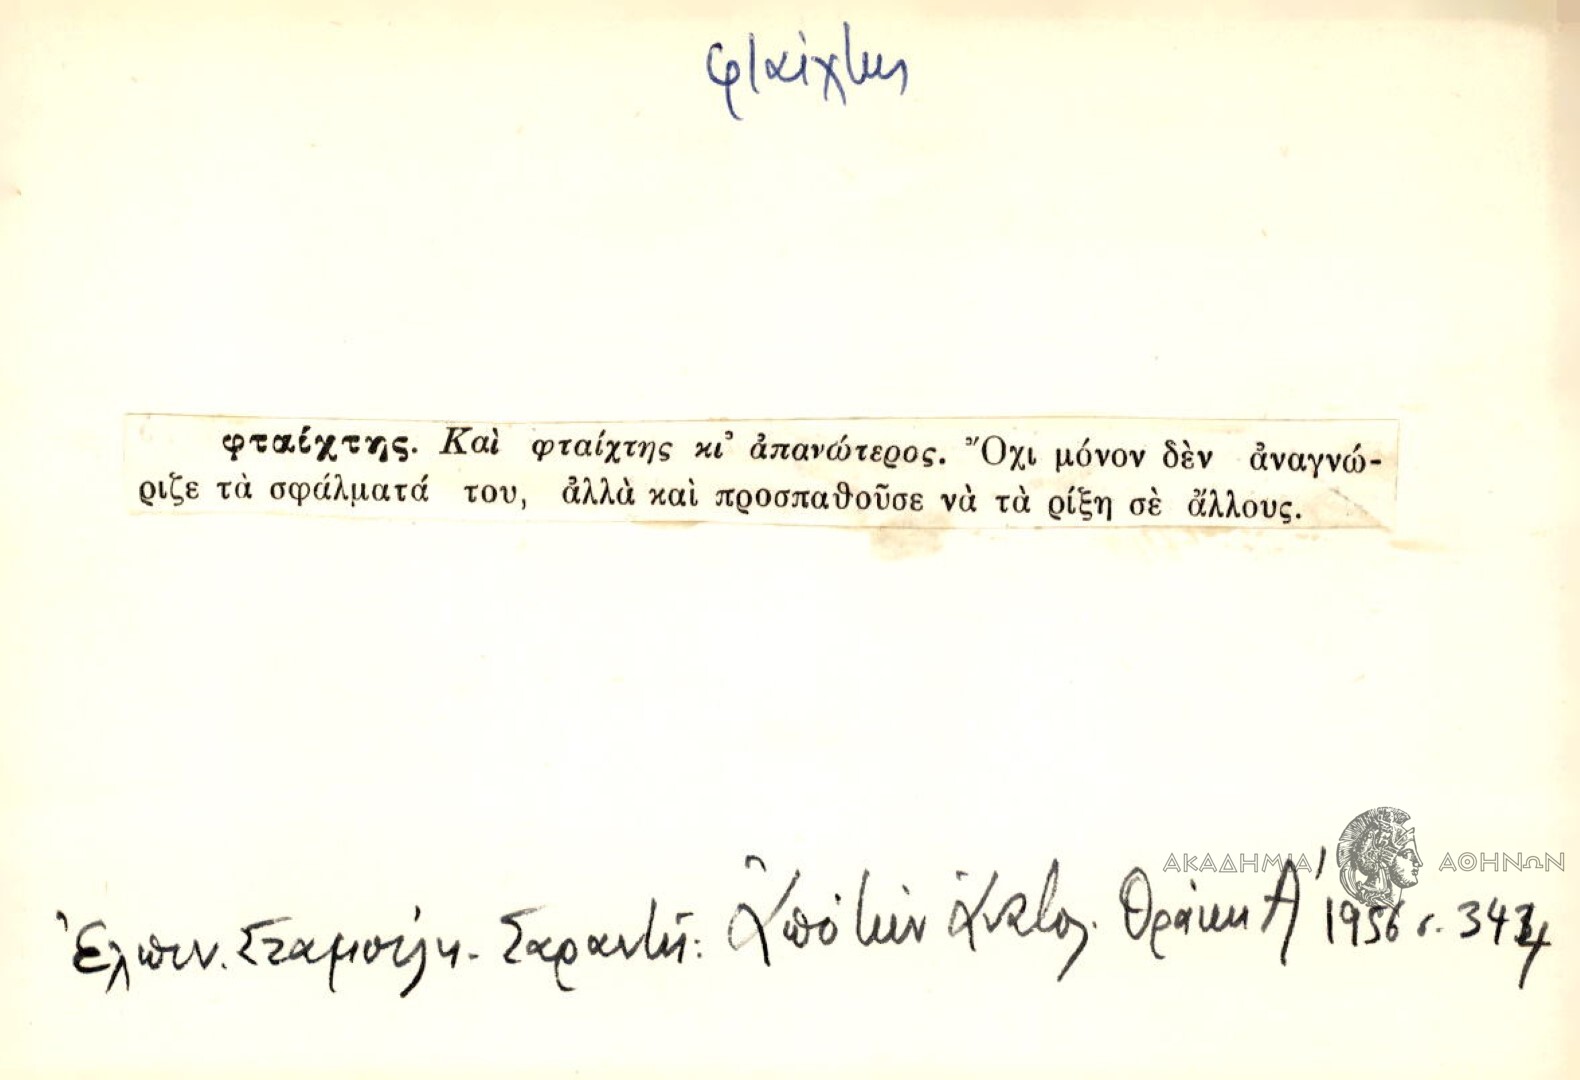 φταίχτης
φταίχτης. Καὶ φταίχτης κι᾽ ἀπανώτερος. Ὄχι μόνον δὲν ἀναγνώ-
ριζε τὰ σφάλματά του, ἀλλὰ καὶ προσπαθοῦσε νὰ τὰ ρίξη σὲ ἄλλους.
ΑΚΑΔΗΜΙΑ ΑΘΗΝΩΝ
Ἐλπιν. Σταμούλη - Σαραντῆ: Ἀπὸ τὴν Ἀνατολ. Θράκη Α' 1956 σ.